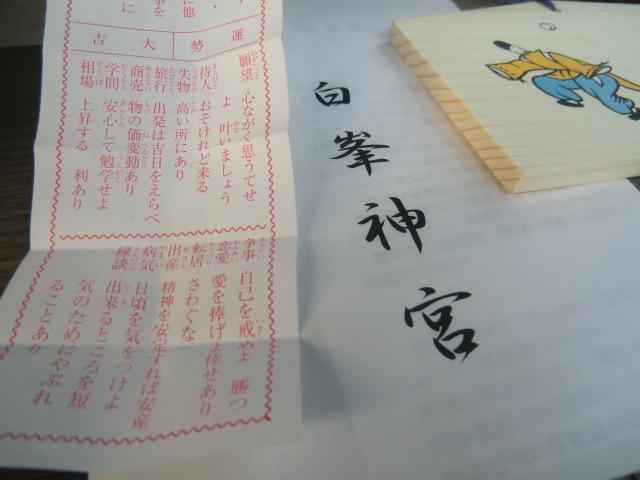 運勢
大吉
願望 心ながく思うてせよ 叶いましょう
待人 おそけれど来る
失物 高い所にあり
旅行 出発は吉日をえらべ
商売 物の価変動あり
学問 安心して勉学せよ
相場 上昇する 利あり
争事 自己を戒めよ 勝つ
恋愛 愛を捧げよ倖せあり
転居 さわぐな
出産 精神を安定すれば安産
病気 日頃を気をつけよ
縁談 出来るところを短気のためにやぶれることあり
白峯神宮